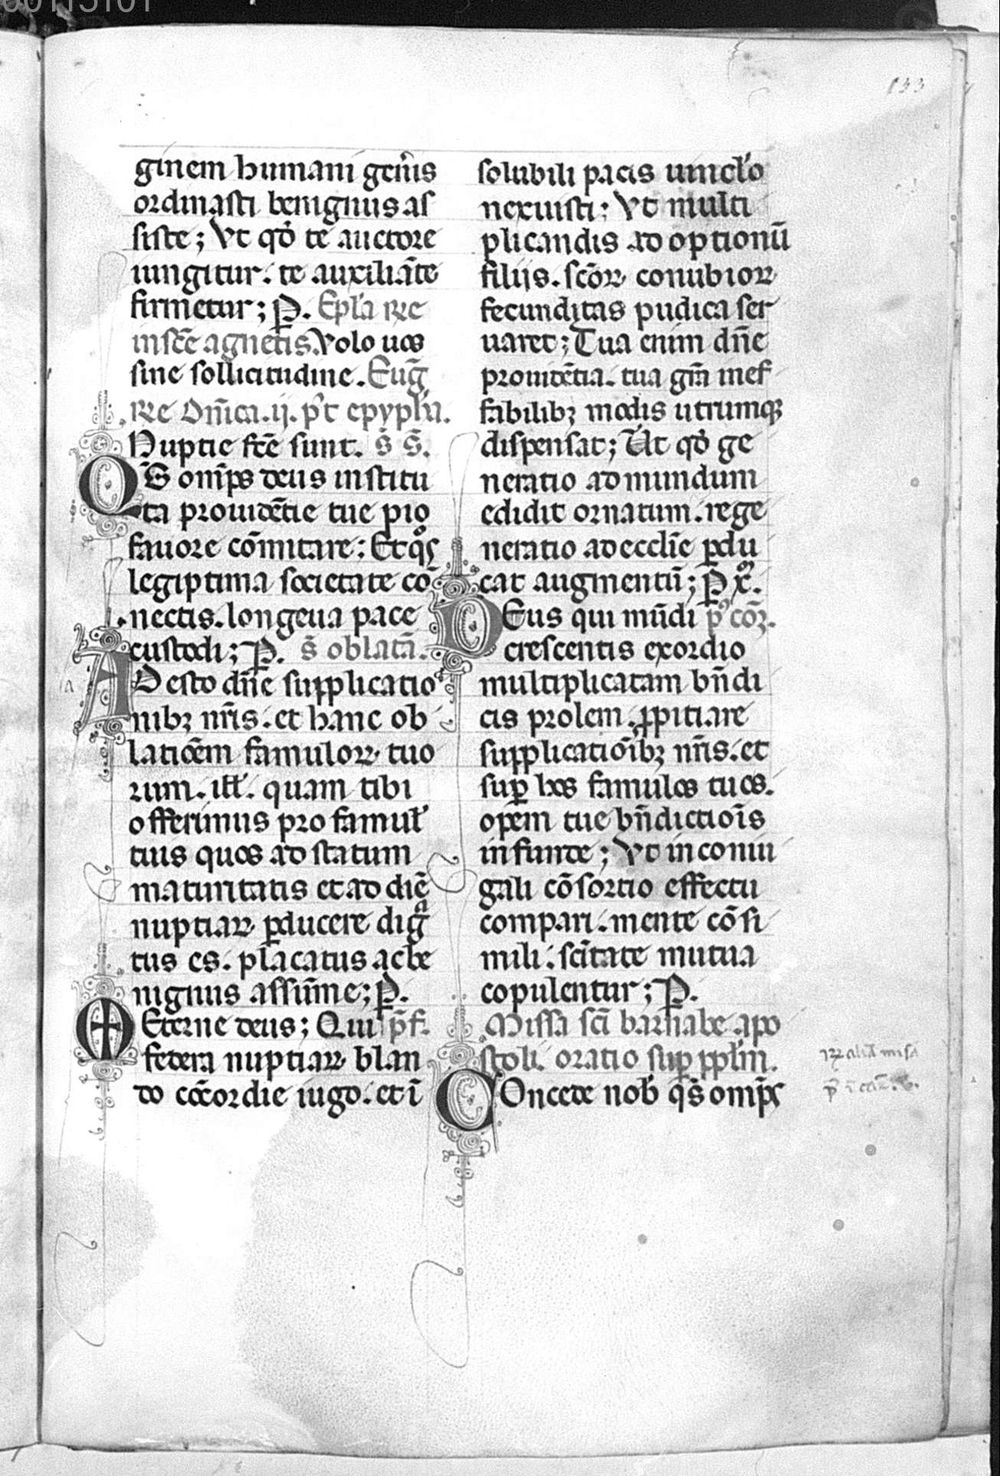 133
ginem humani gen̄is
ordinasti benignus as
siste; Vt qď te auctore
iungitur. te auxiliāte
firmetur; P̱. Ep̄la Rƺe
in sēē agnetis. Volo uos
sine sollicitudine. Euḡ
Rƺe Dn̄ica. ii. p't epyph̄a.
Nuptie fcē sunt. s̄ s̄.
QS om̄ps deus institu
ta prouidētie tue pio
fauore cōmitare; Et qͦs
legiptima societate cō
nectis. longeua pace
custodi; P̱. s̄ oblatā.
ADesto dn̄e supplicatio
nibꝫ nr̄is. et hanc ob
latiōem famuloꝝ tuo
rum. ill̄. quam tibi
offerimus pro famul'
tuis quos ad statum
maturitatis et ad diē
nuptiaꝝ ꝑducere dig
tus es. placatus ac be
nignus assūme; P̱.
Eterne deus; Qui p̄f.
federa nuptiaꝝ blan
do cōcordie iugo. et ī
solubili pacis uinclo
nexuisti; Vt multi
plicandis adoptionū
filijs. sc̄oꝝ conubioꝝ
fecunditas pudica ser
uaret; Tua enim dn̄e
prouidētia. tua gr̄a inef
fabilibꝫ modis utrumqꝫ
dispensat; Ut qď ge
neratio ad mundum
edidit ornatum. rege
neratio ad ecclīe ꝑdu
cat augmentū; P̱ x̄.
DEus qui mūdi p' cōꝫ.
crescentis exordio
multiplicatam bn̄di
cis prolem. ꝓpitiare
supplicatiōibꝫ nr̄is. et
suꝑ hos famulos tuos.
opem tue bn̄dictiōis
infunde; Vt in coniu
gali cōsortio effectu
compari. mente cōsi
mili. sc̄itate mutua
copulentur; P̱.
Missa sc̄i barnabe apo
stoli. oratio suꝑ pp̄lm.
COncede nob' q̄s omp̄s